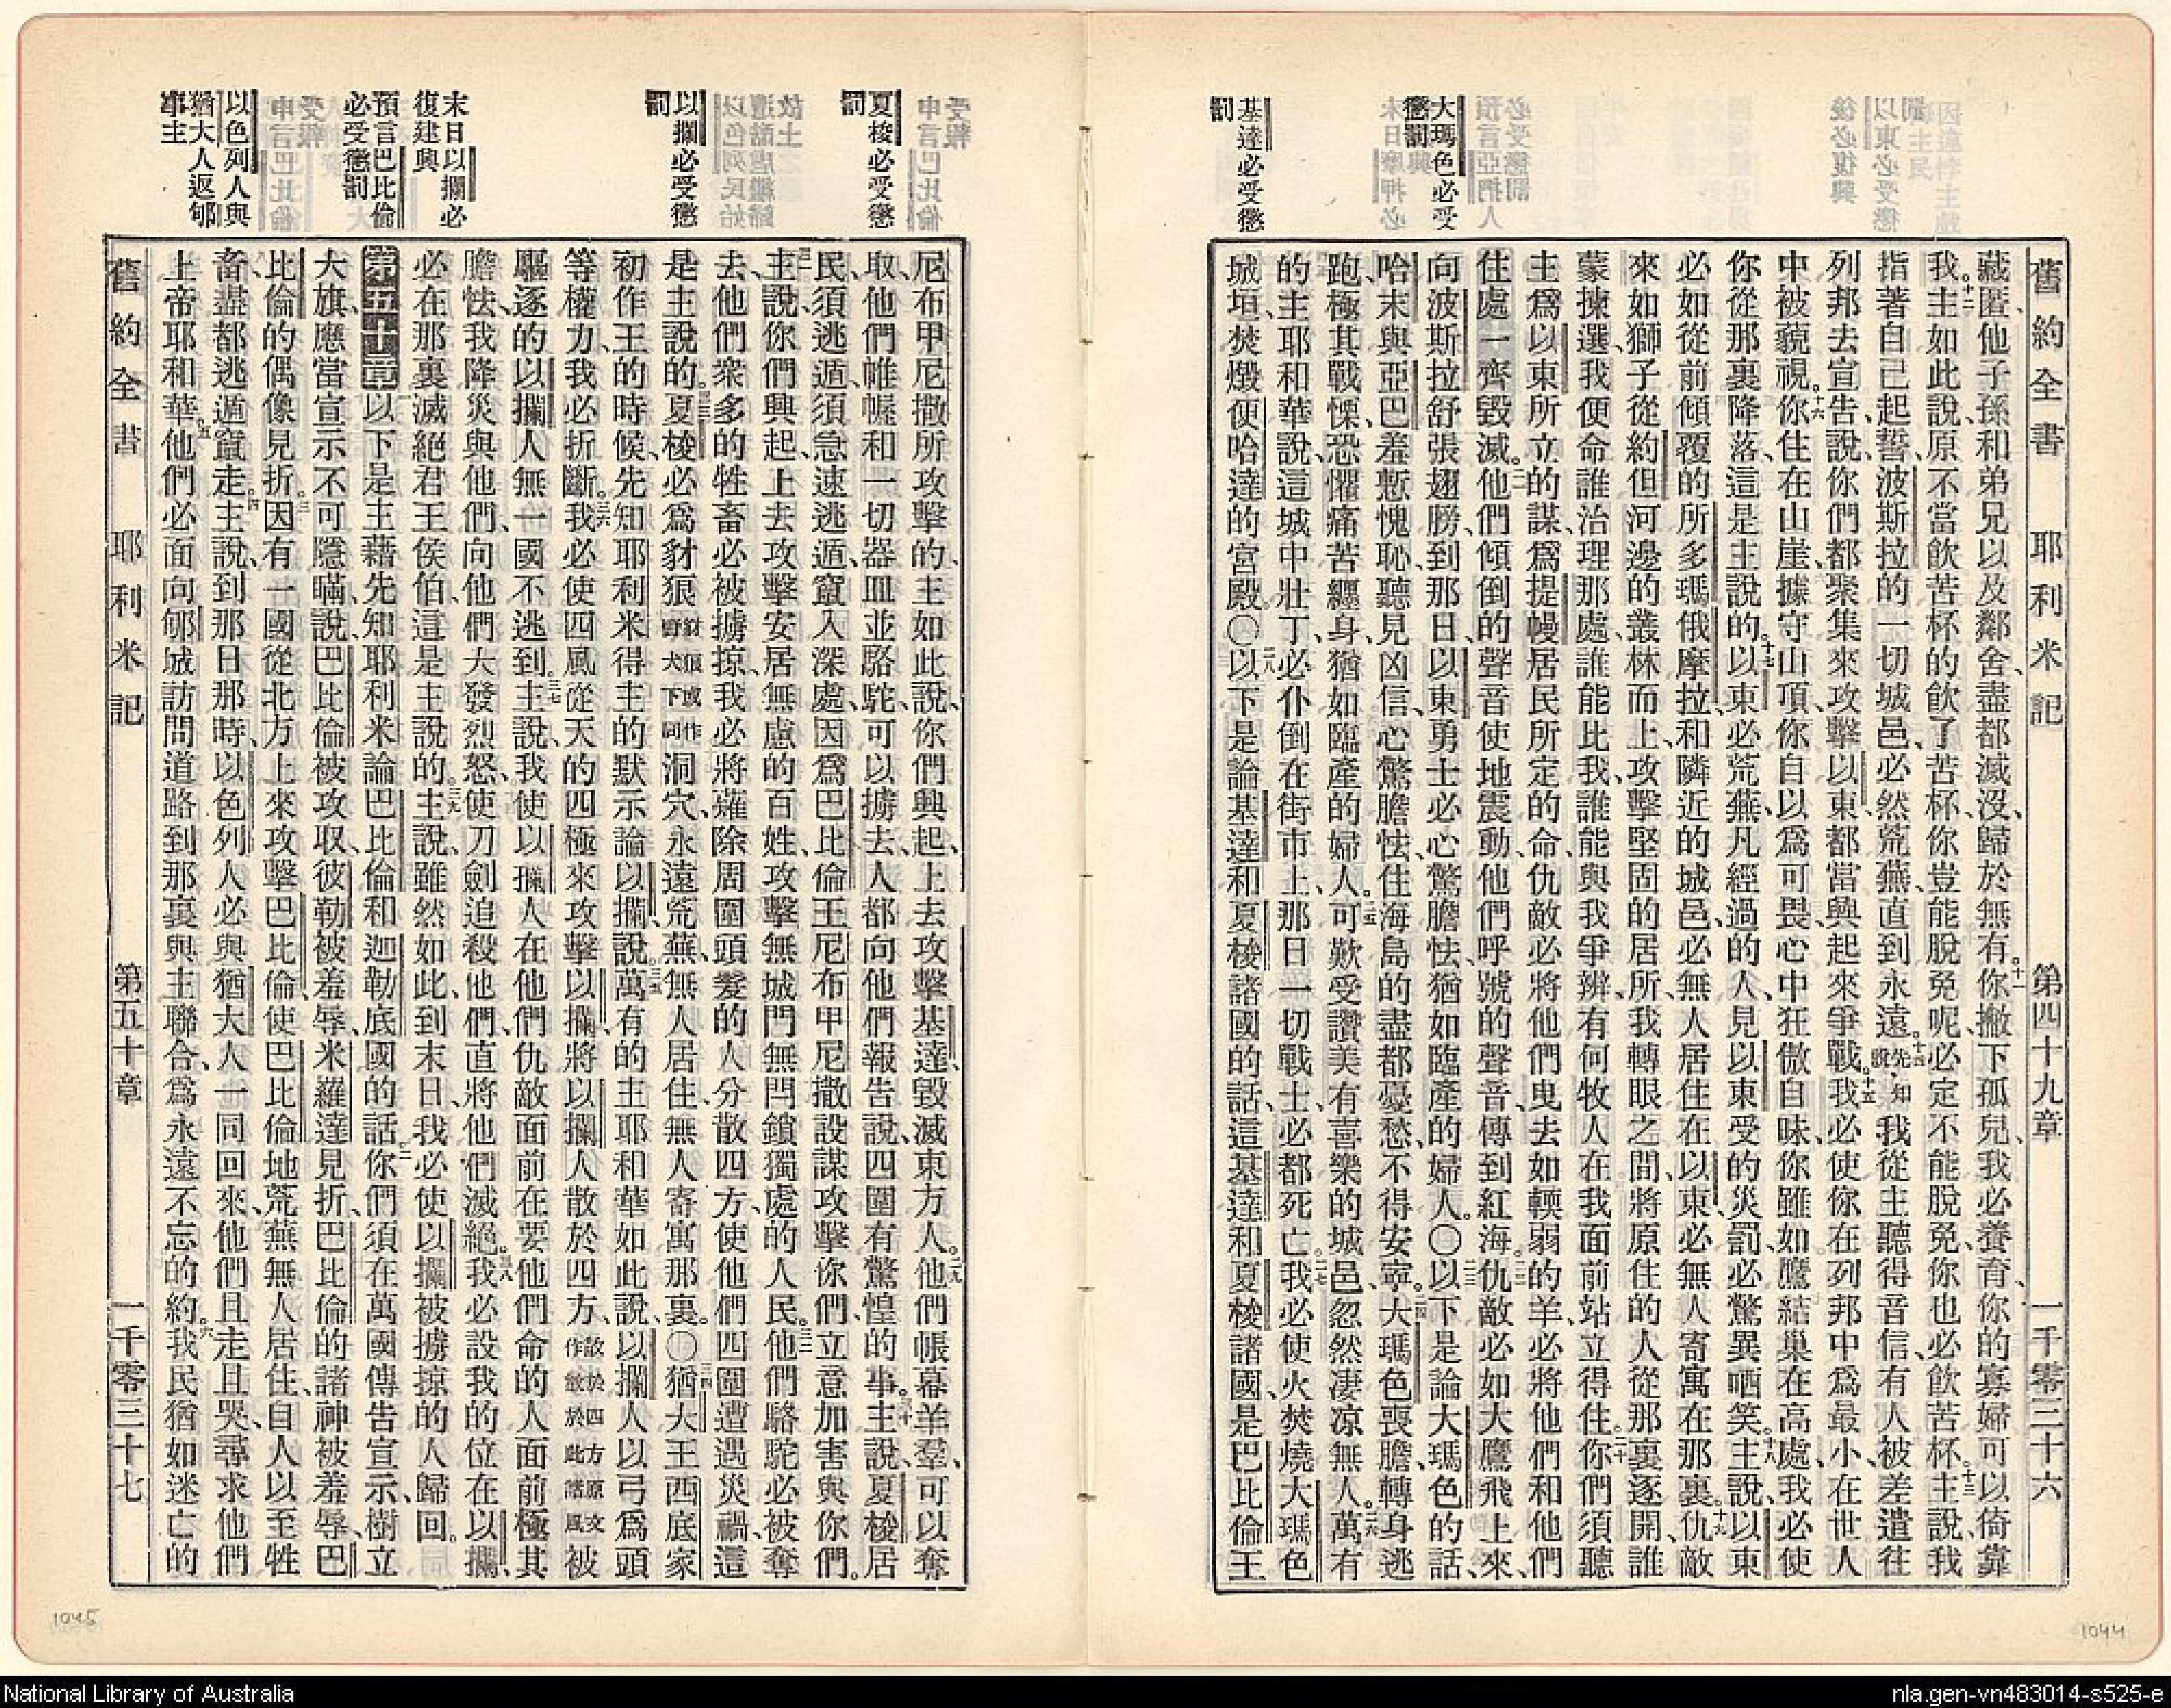 舊約全書 耶利米記 第四十九章 一千零三十六
藏匿他子孫和弟兄以及鄰舍、盡都滅沒、歸於無有。十一你撇下孤兒、我必養育、你的寡婦可以倚靠
我。十二主如此說、原不當飲苦杯的飲了苦杯、你豈能脫免呢、必定不能脫免、你也必飲苦杯。十三主說、我
指著自己起誓、波斯拉的一切城邑、必然荒蕪、直到永遠。十四先知說我從主聽得音信、有人被差遣往
列邦去宣告說、你們都聚集來攻擊以東、都當興起來爭戰。十五我必使你在列邦中爲最小、在世人
中被藐視。十六你住在山崖、據守山頂、你自以爲可畏、心中狂傲自昧、你雖如鷹結巢在高處、我必使
你從那裏降落、這是主說的。十七以東必荒蕪、凡經過的人、見以東受的災罰、必驚異哂笑。十八主說、以東
必如從前傾覆的所多瑪俄摩拉、和隣近的城邑、必無人居住在以東、必無人寄寓在那裏。十九仇敵
來如獅子從約但河邊的叢林而上、攻擊堅固的居所、我轉眼之間、將原住的人從那裏逐開、誰
蒙揀選、我便命誰治理那處、誰能比我、誰能與我爭辨、有何牧人在我面前站立得住。二十你們須聽
主爲以東所立的謀、爲提幔居民所定的命、仇敵必將他們曳去如輭弱的羊、必將他們和他們
住處一齊毀滅。二一他們傾倒的聲音使地震動、他們呼號的聲音、傳到紅海。二二仇敵必如大鷹飛上來、
向波斯拉舒張翅膀、到那日、以東勇士必心驚膽怯、猶如臨產的婦人。〇二三以下是論大瑪色的話、
哈末與亞巴羞慙愧恥、聽見凶信、心驚膽怯、住海島的盡都憂愁、不得安寧。二四大瑪色喪膽、轉身逃
跑、極其戰慄、恐懼痛苦纏身、猶如臨產的婦人。二五可歎受讚美有喜樂的城邑、忽然凄凉無人。二六萬有
的主耶和華說、這城中壯丁、必仆倒在街市上、那日一切戰士、必都死亡。二七我必使火焚燒大瑪色
城垣、焚燬便哈達的宮殿。〇二八以下是論基達和夏梭諸國的話、這基達和夏梭諸國、是巴比倫王
大瑪色必受
懲罰
基達必受懲
罰
尼布甲尼撒所攻擊的、主如此說、你們興起、上去攻擊基達、毀滅東方人。二九他們帳幕羊羣、可以奪
取、他們帷幄和一切器皿並駱駝、可以擄去、人都向他們報告說、四圍有驚惶的事。三十主說、夏梭居
民、須逃遁、須急速逃遁、竄入深處、因爲巴比倫王尼布甲尼撒設謀攻擊你們、立意加害與你們。
三一主說、你們興起、上去攻擊安居無慮的百姓、攻擊無城門無閂鎖獨處的人民。三二他們駱駝必被奪
去、他們衆多的牲畜必被擄掠、我必將薙除周圍頭髮的人、分散四方、使他們四圍遭遇災禍、這
是主說的。三三夏梭必爲豺狼豺狼或作野犬下同洞穴、永遠荒蕪、無人居住、無人寄寓那裏。〇三四猶大王西底家
初作王的時候、先知耶利米得主的默示論以攔說。三五萬有的主耶和華如此說、以攔人以弓爲頭
等權力、我必折斷。三六我必使四風從天的四極來攻擊以攔、將以攔人散於四方、散於四方原文作散於此諸風被
驅逐的以攔人、無一國不逃到。三七主說、我使以攔人在他們仇敵面前、在要他們命的人面前、極其
膽怯、我降災與他們、向他們大發烈怒、使刀劍追殺他們、直將他們滅絕。三八我必設我的位在以攔、
必在那裏滅絕君王侯伯、這是主說的。三九主說、雖然如此、到末日、我必使以攔被擄掠的人歸回。
第五十章 一以下是主藉先知耶利米論巴比倫和迦勒底國的話。二你們須在萬國傳告宣示、樹立
大旗、應當宣示不可隱瞞、說、巴比倫被攻取、彼勒被羞辱、米羅達見折、巴比倫的諸神被羞辱、巴
比倫的偶像見折。三因有一國從北方上來攻擊巴比倫、使巴比倫地荒蕪、無人居住、自人以至牲
畜、盡都逃遁竄走。四主說、到那日那時、以色列人必與猶大人一同回來、他們且走且哭、尋求他們
上帝耶和華。五他們必面向郇城訪問道路、到那裏與主聯合、爲永遠不忘的約。六我民猶如迷亡的
舊約全書 耶利米記 第五十章 一千零三十七
夏梭必受懲
罰
以攔必受懲
罰
末日以攔必
復建興
預言巴比倫
必受懲罰
以色列人與
猶大人返郇
事主
1045
1044
National Library of Australia
nla.gen-vn483014-s525-e